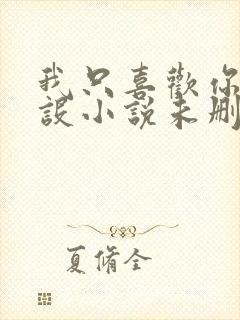 我只喜歡你
設小說未刪
夏脩全